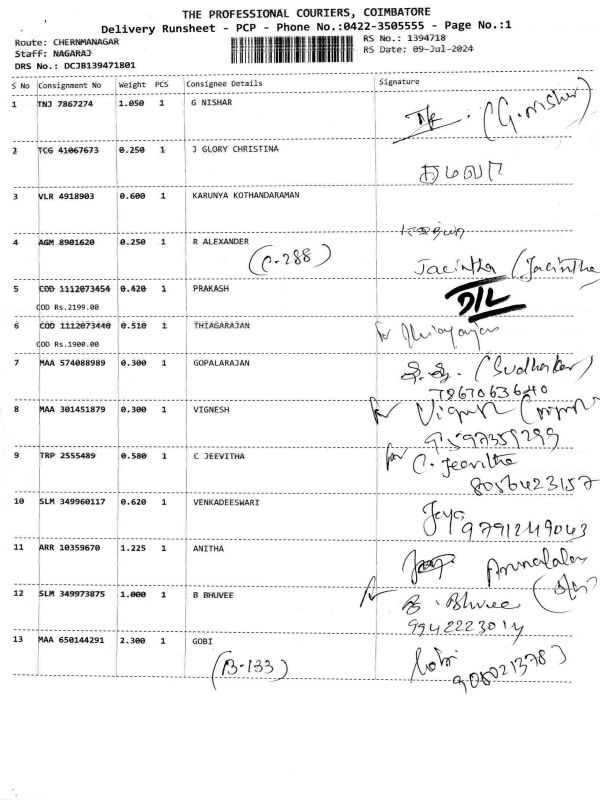 THE PROFESSIONAL COURIERS, COIMBATORE
Delivery Runsheet - PCP - Phone No.:0422-3505555 - Page No.:1
Route: CHERNMANAGAR
RS No.: 1394718
Staff: NAGARAJ
RS Date: 09-Jul-2024
DRS No.: DCJB139471801
S No Consignment No Weight PCS Consignee Details Signature
1 TNJ 7867274 1.050 1 G NISHAR
(G.nisher)
2 TCG 41067673 0.250 1 J GLORY CHRISTINA
3 VLR 4918903 0.600 1 KARUNYA KOTHANDARAMAN
4 AGM 8901620 0.250 1 R ALEXANDER
(C-288)
Jacintha (Jacintha
5 COD 1112073454 0.420 1 PRAKASH
D/L
COD Rs.2199.00
6 COD 1112073440 0.510 1 THIAGARAJAN
COD Rs.1900.00
7 MAA 574088989 0.300 1 GOPALARAJAN
(Sudhakar)
7867063640
8 MAA 301451879 0.300 1 VIGNESH
for Vignesh
9 TRP 2555489 0.580 1 C JEEVITHA
for C. Jeevitha
8056423157
10 SLM 349960117 0.620 1 VENKADEESWARI
Jaya
9791249043
11 ARR 10359670 1.225 1 ANITHA
12 SLM 349973875 1.000 1 B BHUVEE
B. Bhuvee
9942223014
13 MAA 650144291 2.300 1 GOBI
(B-133)
Gobi